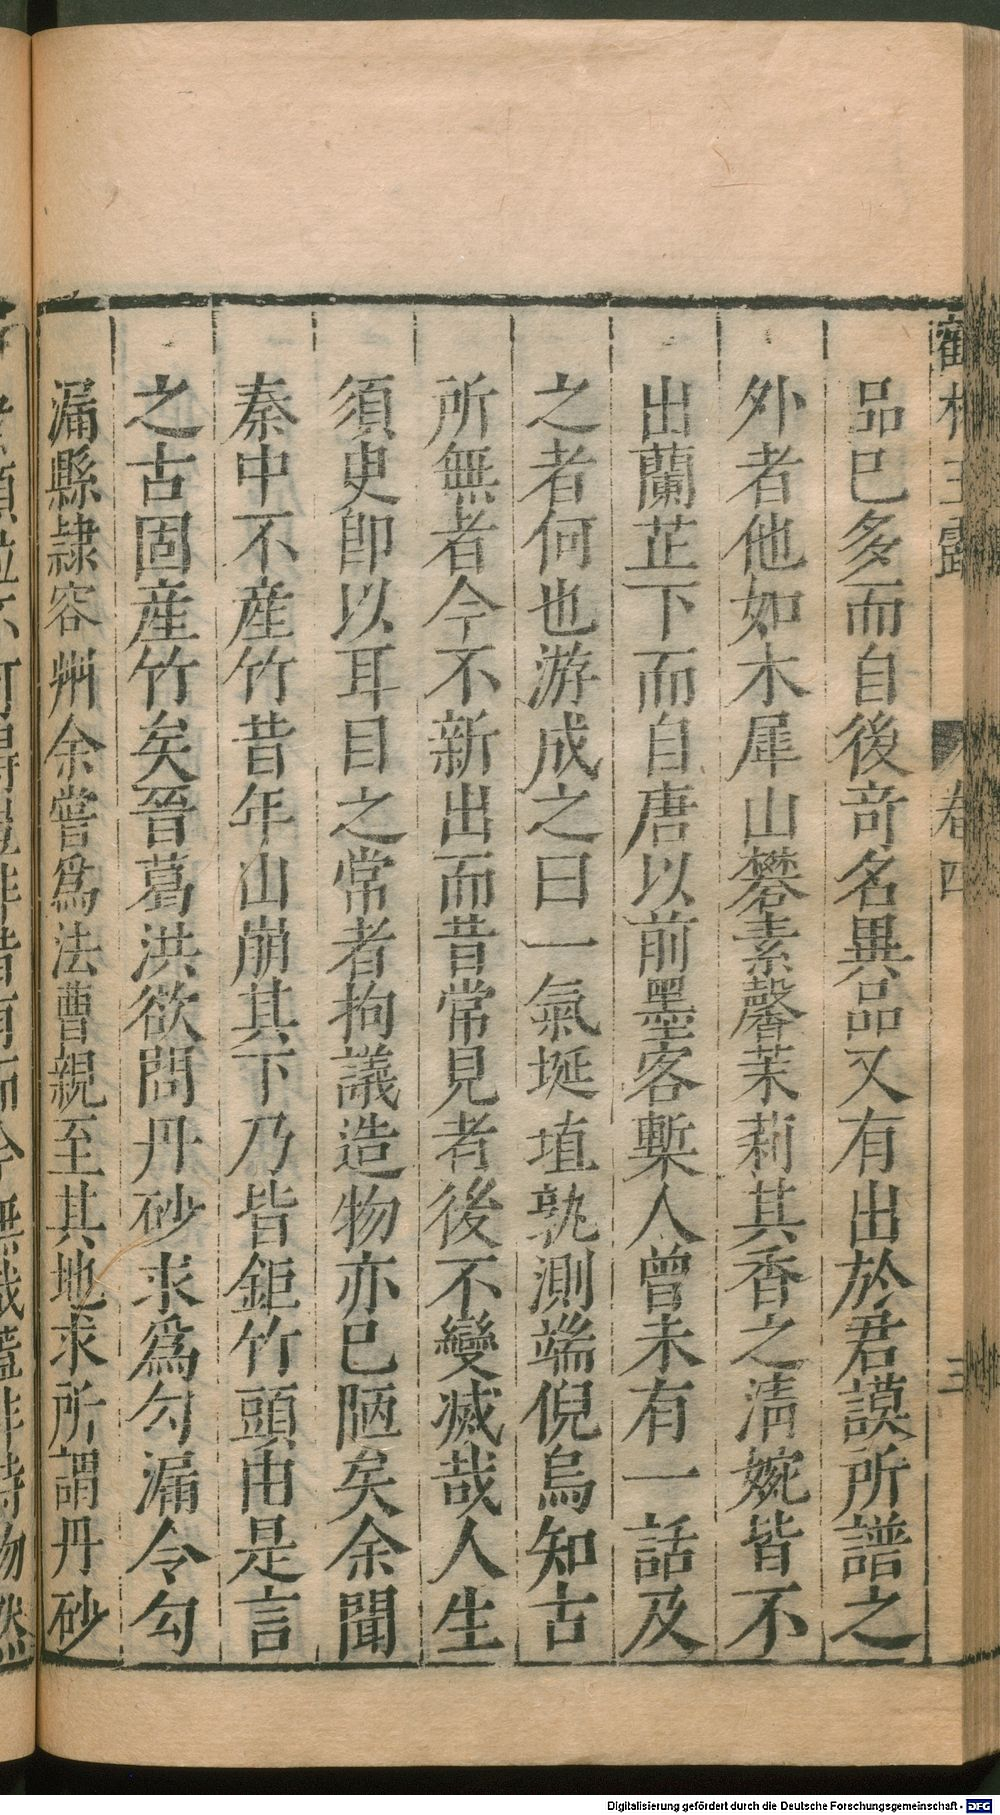 品已多而自後奇名異品又有出於君謨所譜之
外者他如木犀山礬素馨茉莉其香之淸婉皆不
出蘭芷下而自唐以前墨客槧人曾未有一話及
之者何也游成之曰一氣埏埴孰測端倪烏知古
所無者今不新出而昔常見者後不變滅哉人生
須臾卽以耳目之常者拘議造物亦已陋矣余聞
秦中不産竹昔年山崩其下乃皆鉅竹頭由是言
之古固産竹矣晉葛洪欲問丹砂求爲勾漏令勾
漏縣隷容州余嘗爲法曹親至其地求所謂丹砂
卷四
三
Digitalisierung gefördert durch die Deutsche Forschungsgemeinschaft - DFG